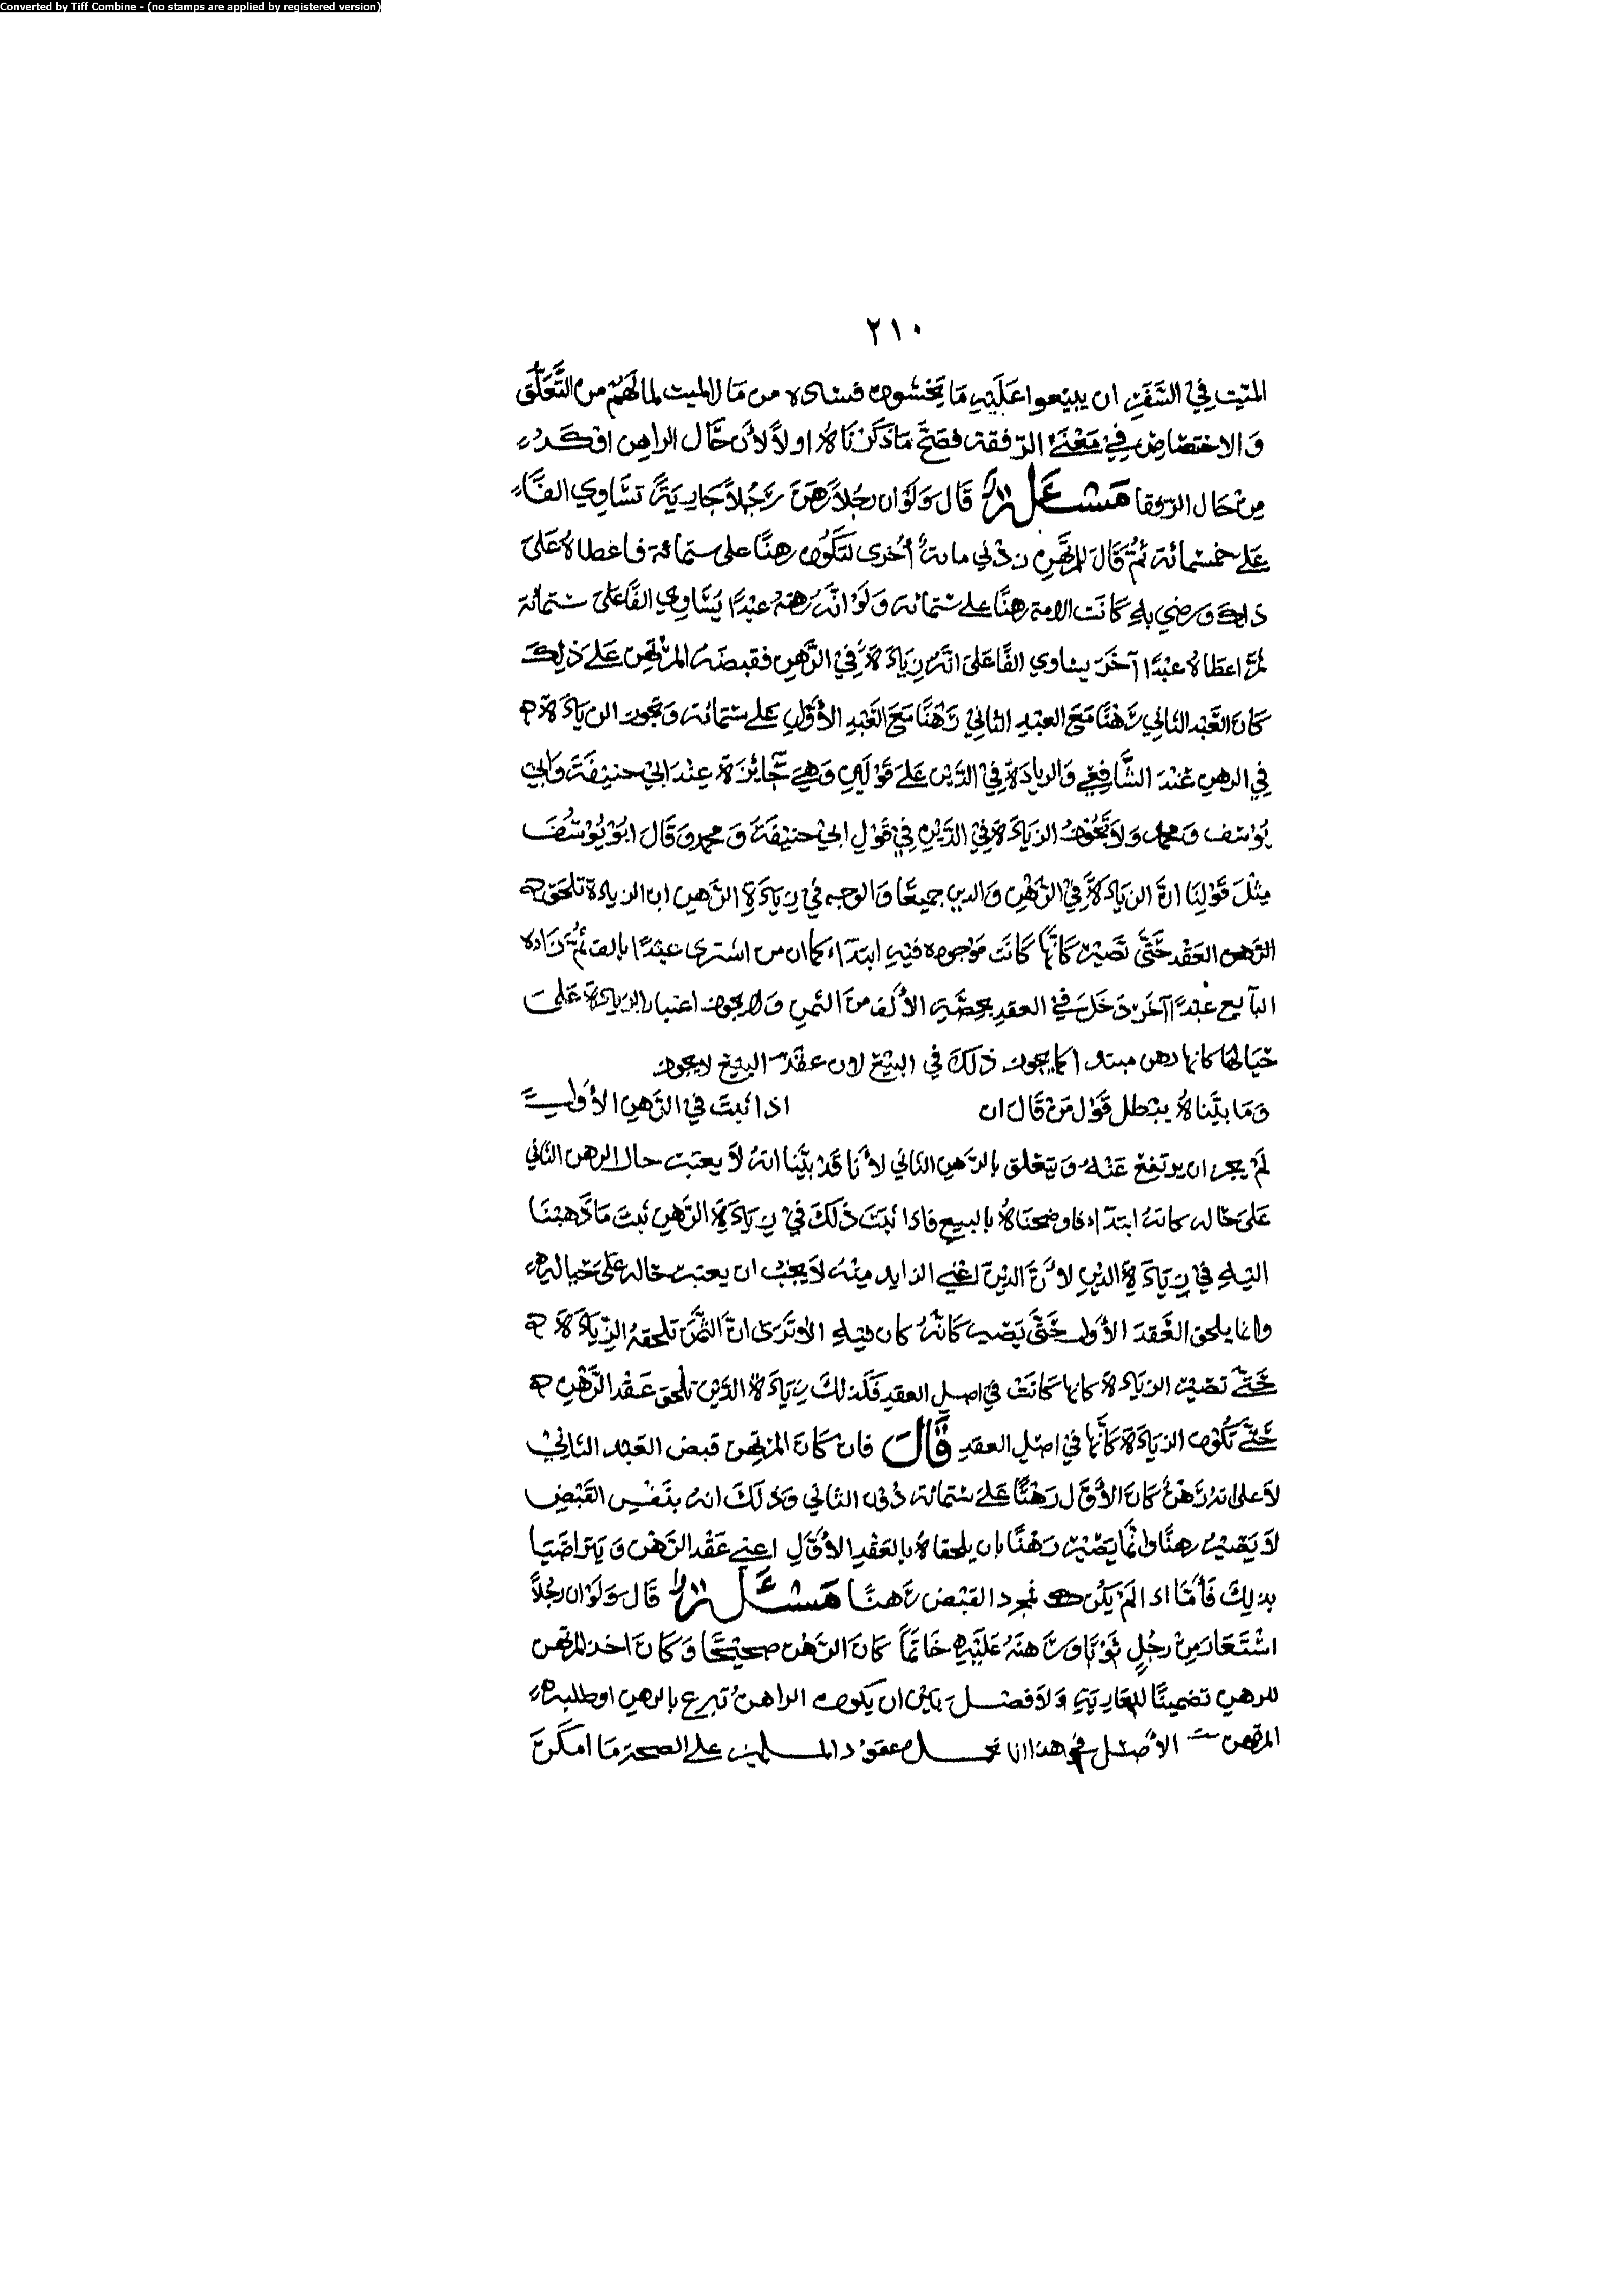 Converted by Tiff Combine - (no stamps are applied by registered version)
٢١٠
الميّت في السَّفَر ان يبيْعوا عَلَيهِ مَا يَخشون فساده من مَال الميت لما لَهمْ من التَّعَلّق
وَالاختصَاصِ فِيْ مَعْنَى الرّفقة فصَحّ مَا ذكَرْنَاهُ اولاً لأن حَال الراهِن اوْكَدُ
مِنْ حَال الرّفقا مَسْئَلة قَال وَلَوْ ان رجُلاً رَهَنَ رَجُلاً جَاريَةً تسَاوي الفًا
عَلى خمسْمائة ثمَّ قَالَ للمرْتَهِنِ زدْني مائةً أُخرى لتَكُوْن رهنًا على ستمّائة فاعْطاهُ عَلىَ
ذلِكَ وَرضي بهِ كَانَت الامة رهنًا على ستمائة وَلوْ انَّهُ رهنهُ عبْدًا يُسَاوي الفًا عَلىَ ستمائة
ثمَّ اعطاهُ عبْدًا آخَرَ يساوي الفًا عَلىَ انَّهُ زيَادَةً في الرَّهنِ فقبضَهُ المرْتهِن عَلىَ ذلِكَ
كانَ العَبْد الثاني رَهْنًا مَعَ العبْدِ الثاني رَهْنًا مَعَ العَبْدِ الأوَّلِ عَلى ستمائة وَتجوز الزيَادَة
في الرهنِ عنْدَ الشَّافِعِي وَالزيادَة فيْ الدَّيْن عَلىَ قوْلَينِ وَهيَ جَائزَة عِنْدَ ابيْ حنيْفَةَ وَابيْ
يوْسف وَمحمد وَلاَ تَجُوْزُ الزيَادَة في الدَّيْنِ فِيْ قوْلِ ابيْ حنيْفَةَ وَمحمد وَقَالَ ابُوْ يُوْسُفَ
مِثْلَ قَوْلِنَا انَّ الزيَادَةَ فيْ الرَّهْنِ وَالدينِ جميعًا وَالوجه فيْ زيَادَةِ الرَّهنِ ان الزيادة تلحَق
الرَّهن العَقْد حَتَّى تَصِيْرَ كَانَّهَا كَانَت موْجوده فيهِ ابتدَآء كما ان من اشترى عبْدًا بالف ثمَّ زَاده
البآيع عبْدًا آخَر دَخَلَ في العقد بحصَّتِهِ الأُلف منَ الثمنِ وَلا يجوز اعتبار الزيادة عَلىَ
حيَالهَا كانها رهن مبتدا كما يجوز ذلكَ في البيْع لان عقْدَ البيْع لا يجوز
وَمَا بيَّناهُ يبْطل قَوْل مَنْ قَالَ ان اذا ثبتَ في الرَّهنِ الأوَّلِ
لَمْ يجز ان يرتفعْ عَنْهُ وَيتعْلق بالرَّهنِ الثاني لأنا قَدْ بيَّنا انهُ لاَ يعتبر حال الرهن الثاني
عَلىَ حَاله كانهُ ابتدآء وَاوضحنَاهُ بالبيع فاذا ثبَتَ ذلكَ فيْ زيَادَةِ الرَّهنِ ثبتَ مَا ذَهبْنَا
اليْهِ فيْ زيَادَةِ الدينِ لأنَّ الديْنَ اعْني الزايد منْهُ لاَ يجبُ ان يعتبر حَاله عَلىَ حَياله
وانما يلحق العَقدَ الأوَّل حَتّىَ يَصير كَانَّهُ كان فيْهِ الأ ترَى انَّ الثمَنَ تلحقهُ الزّيَادَة
حَتّى تصيْر الزيادة كانها كَانَتْ فيْ اصل العقد فَكَذلكَ زيَادَة الدَّيْن تلْحق عَقْدَ الرَّهْنِ
حَتّى تكُوْن الزيَادَة كَأنَّها في اصْلِ العقدِ قَالَ فان كَانَ المرتَهِن قبض العَبْد الثَّانيْ
لا على انهُ رَهْنٌ كانَ الأُوَّل رَهْنًا عَلى ستمائة دُوْن الثاني وَذلكَ انهُ بنَفْسِ القَبْضِ
لاَ يَصيْرُ رهنًا وانَّمَا يَصيْر رَهْنًا بان يلحقاهُ بالعَقْدِ الأُوَّلِ اعني عَقْد الرَّهْن وَيتراضَيَا
بذلِكَ فَأمَّا اذا لَمْ يَكُنْ بمجرد القبْض رَهنًا مَسْئَلة قَال وَلَوْ ان رجُلاً
اسْتَعَارَ مِنْ رجُلٍ ثوْبًا وَرَهنَهُ عَلَيْهِ خَاتمًا كانَ الرَّهْن صحيْحًا وَكَانَ اخذ المرتهن
للرهنِ تضمينًا للعَاريَةِ وَلاَ فصْل بَيْن ان يكون الراهنُ تبرع بالرهن او طلبه
المرتهن الأصْل في هذا انا نحمل عقود المسلمين على الصحة مَا امكنَ